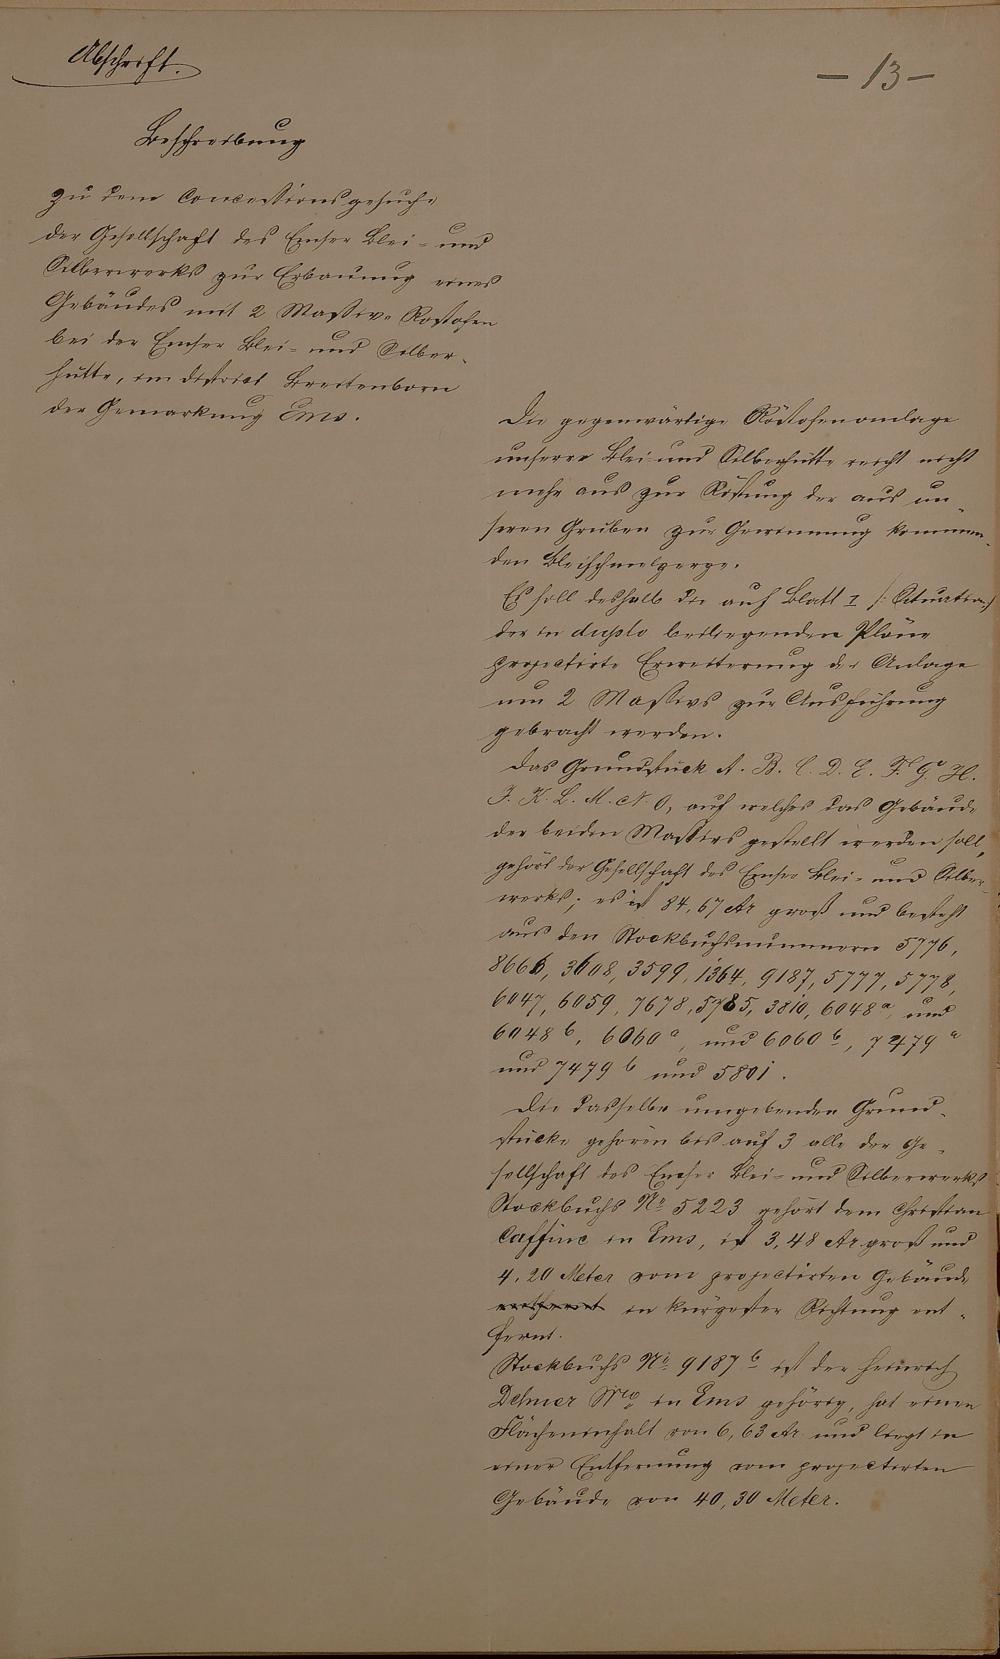 Abschrift.
- 13 -
Beschreibung
zu dem Concessionsgesuche
der Gesellschaft des Emser Blei- und
Silberwerks zur Erbauung eines
Gebäudes mit 2 Massive Rostofen
bei der Emser Blei- und Silber-
hütte, im District Breitenborn
der Gemarkung Ems.
Die gegenwärtige Röstofenanlage
unserer Blei- und Silberhütte reicht nicht
mehr aus zur Röstung der aus un-
seren Gruben zur Gewinnung kommen-
den Bleischmelzerze.
Es soll deshalb die auf Blatt I /: Situation :/
der in duplo beiliegenden Pläne
projectirte Erweiterung der Anlage
um 2 Massivs zur Ausführung
gebracht werden.
Das Grundstück A. B. C. D. E. F. G. H.
J. K. L. M. N. O, auf welches das Gebäude
der beiden Massivs gestellt werden soll,
gehört der Gesellschaft des Emser Blei- und Silber-
werks; es ist 84,67 Ar groß und besteht
aus den Stockbuchsnummern 5776,
8666, 3608, 3599, 1364, 9187, 5777, 5778,
6047, 6059, 7678, 5785, 3810, 6048 a, und
6048 b, 6060 a, und 6060 b, 7479 a
und 7479 b und 5801.
Die dasselbe umgebenden Grund-
stücke gehören bis auf 3 alle der Ge-
sellschaft des Emser Blei- und Silberwerks
Stockbuchs No 5223 gehört dem Christian
Caffine in Ems, ist 3,48 Ar groß und
4,20 Meter vom projectirten Gebäude
entfernt in kürzester Richtung ent-
fernt.
Stockbuchs No 9187 b ist der Heinrich
Dehner Wwe in Ems gehörig, hat einen
Flächeninhalt von 6,63 Ar und liegt in
einer Entfernung vom projectirten
Gebäude von 40,30 Meter.